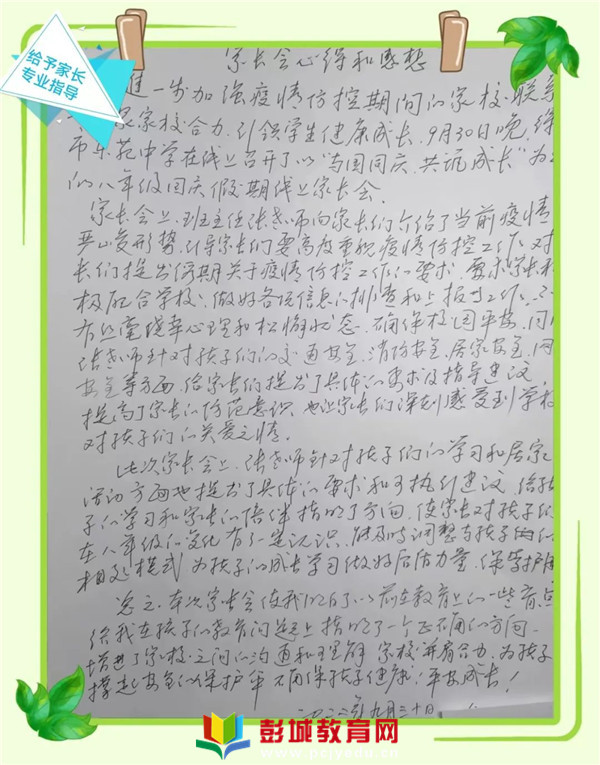 给予家长
专业指导
家长会心得和感想
进一步加强疫情防控期间的家校联系
家校合力,引领学生健康成长,9月30日晚,徐
市东苑中学在线上召开了以“与国同庆,共话成长”为主
的八年级国庆假期线上家长会。
家长会上,班主任张老师向家长们介绍了当前疫情
严峻形势,引导家长们要高度重视疫情防控工作,对
长们提出假期关于疫情防控工作的要求,要求家长积
极配合学校,做好各项信息的排查和上报工作,不
有丝毫侥幸心理和松懈状态,确保校园平安,同时
张老师针对孩子们的交通安全,消防安全,居家安全,网
安全等方面,给家长们提出了具体的要求及指导建议
提高了家长的防范意识,也让家长们深刻感受到学校
对孩子们的关爱之情。
此次家长会上,张老师针对孩子们的学习和居家
活动方面也提出了具体的要求和可执行建议,给孩
子的学习和家长的陪伴指明了方向,使家长对孩子们
在八年级的变化有一定认识,能及时调整与孩子们的
相处模式,为孩子的成长学习做好后备力量,保驾护航
总之,本次家长会使我明白了以前在教育上的一些盲点
给我在孩子的教育问题上指明了一个正确的方向,
增进了家校之间的沟通和理解,家校并有合力,为孩子
撑起安全的保护伞,确保孩子健康,平安成长!
二〇二二年九月三十日
彭城教育网
www.pcjyedu.cn